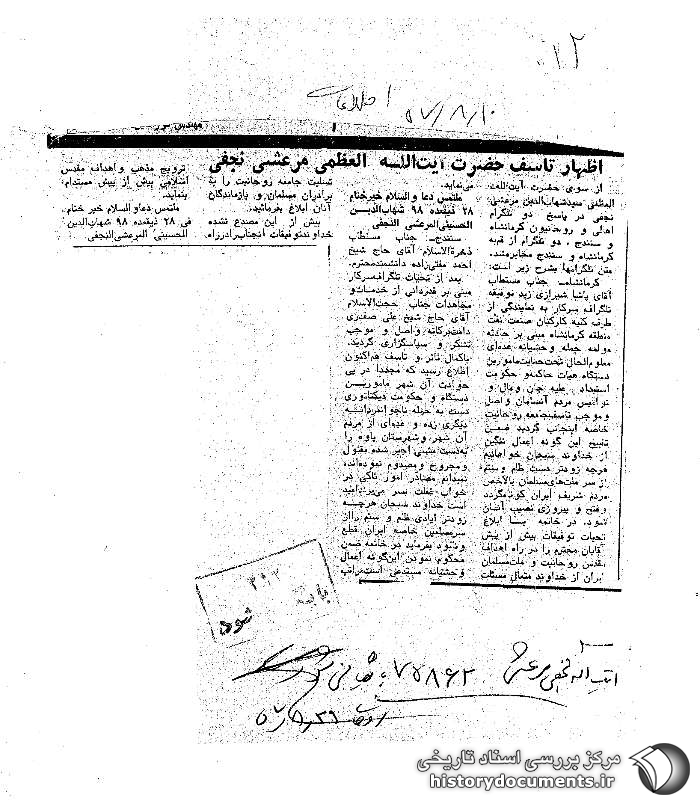 ۱۲
اطلاعات
۵۷/۸/۱۰
اظهار تاسف حضرت آیت‌الله العظمی مرعشی نجفی
از سوی حضرت آیت‌الله
العظمی سیدشهاب‌الدین مرعشی
نجفی در پاسخ دو تلگرام
اهالی و روحانیون کرمانشاه
و سنندج، دو تلگرام از قم به
کرمانشاه و سنندج مخابره شد.
متن تلگرامها بشرح زیر است:
کرمانشاه ـ جناب مستطاب
آقای پاشا شیرازی زید توفیقه
تلگراف سرکار به نمایندگی از
طرف کلیه کارکنان صنعت نفت
منطقه کرمانشاه مبنی بر حادثه
مولمه حمله وحشیانه عده‌ای
معلوم‌الحال تحت حمایت مامورین
دستگاه هیات حاکمه و حکومت
استبداد، علیه جان و مال و
نوامیس مردم آنسامان واصل
و موجب تاسف جامعه روحانیت
خاصه اینجانب گردید ضمن
تقبیح این گونه اعمال ننگین
از خداوند سبحان خواهانیم
هرچه زودتر دست ظلم و ستم
از سر ملت‌های مسلمان بالاخص
مردم شریف ایران کوتاه گردد
و فتح و پیروزی نصیب آنان
شود. در خاتمه با ابلاغ
تحیات توفیقات بیش از پیش
آقایان محترم را در راه اهداف
مقدس روحانیت و ملت مسلمان
ایران از خداوند متعال مسئلت
می‌نماید.
ملتمس دعا و السلام خیر ختام
۲۸ ذیقعده ۹۸ شهاب‌الدین
الحسینی المرعشی النجفی
سنندج ـ جناب مستطاب
ذخرة‌الاسلام آقای حاج شیخ
احمد مفتی‌زاده دانشمند محترم.
بعد از تحیات تلگراف سرکار
مبنی بر قدردانی از خدمات و
مجاهدات جناب حجت‌الاسلام
آقای حاج شیخ علی صفدری
دامت برکاته واصل و موجب
تشکر و سپاسگزاری گردید.
باکمال تاثر و تاسف هم‌اکنون
اطلاع رسید که مجددا در پی
حوادث آن شهر مامورین
دستگاه و حکومت دیکتاتوری
دست به حمله ناجوانمردانه
دیگری زده و عده‌ای از مردم
آن شهر و شهرستان پاوه را
بدست مشتی اجیر شده مقتول
و مجروح و مصدوم نموده‌اند،
نمیدانم مصادر امور تاکی در
خواب غفلت بسر می‌برند امید
است خداوند سبحان هرچه
زودتر ایادی ظلم و ستم را از
سر مسلمین خاصه ایران قطع
و نابود بفرماید در خاتمه ضمن
محکوم نمودن این گونه اعمال
وحشیانه مستدعی است مراتب
تسلیت جامعه روحانیت را به
برادران مسلمان و بازماندگان
آنان ابلاغ بفرمائید.
بیش از این مصدع نشده
خداوند توفیقات آنجناب را در راه
ترویج مذهب و اهداف مقدس
اسلامی بیش از پیش مستدام
بنماید.
ملتمس دعا و السلام خیر ختام.
فی ۲۸ ذیقعده ۹۸ شهاب‌الدین
الحسینی المرعشی النجفی.
۳۱۲
بایگانی شود
آیت اله نجفی مرعشی
۷۵۸۶۲
مرکز بررسی اسناد تاریخی
historydocuments.ir